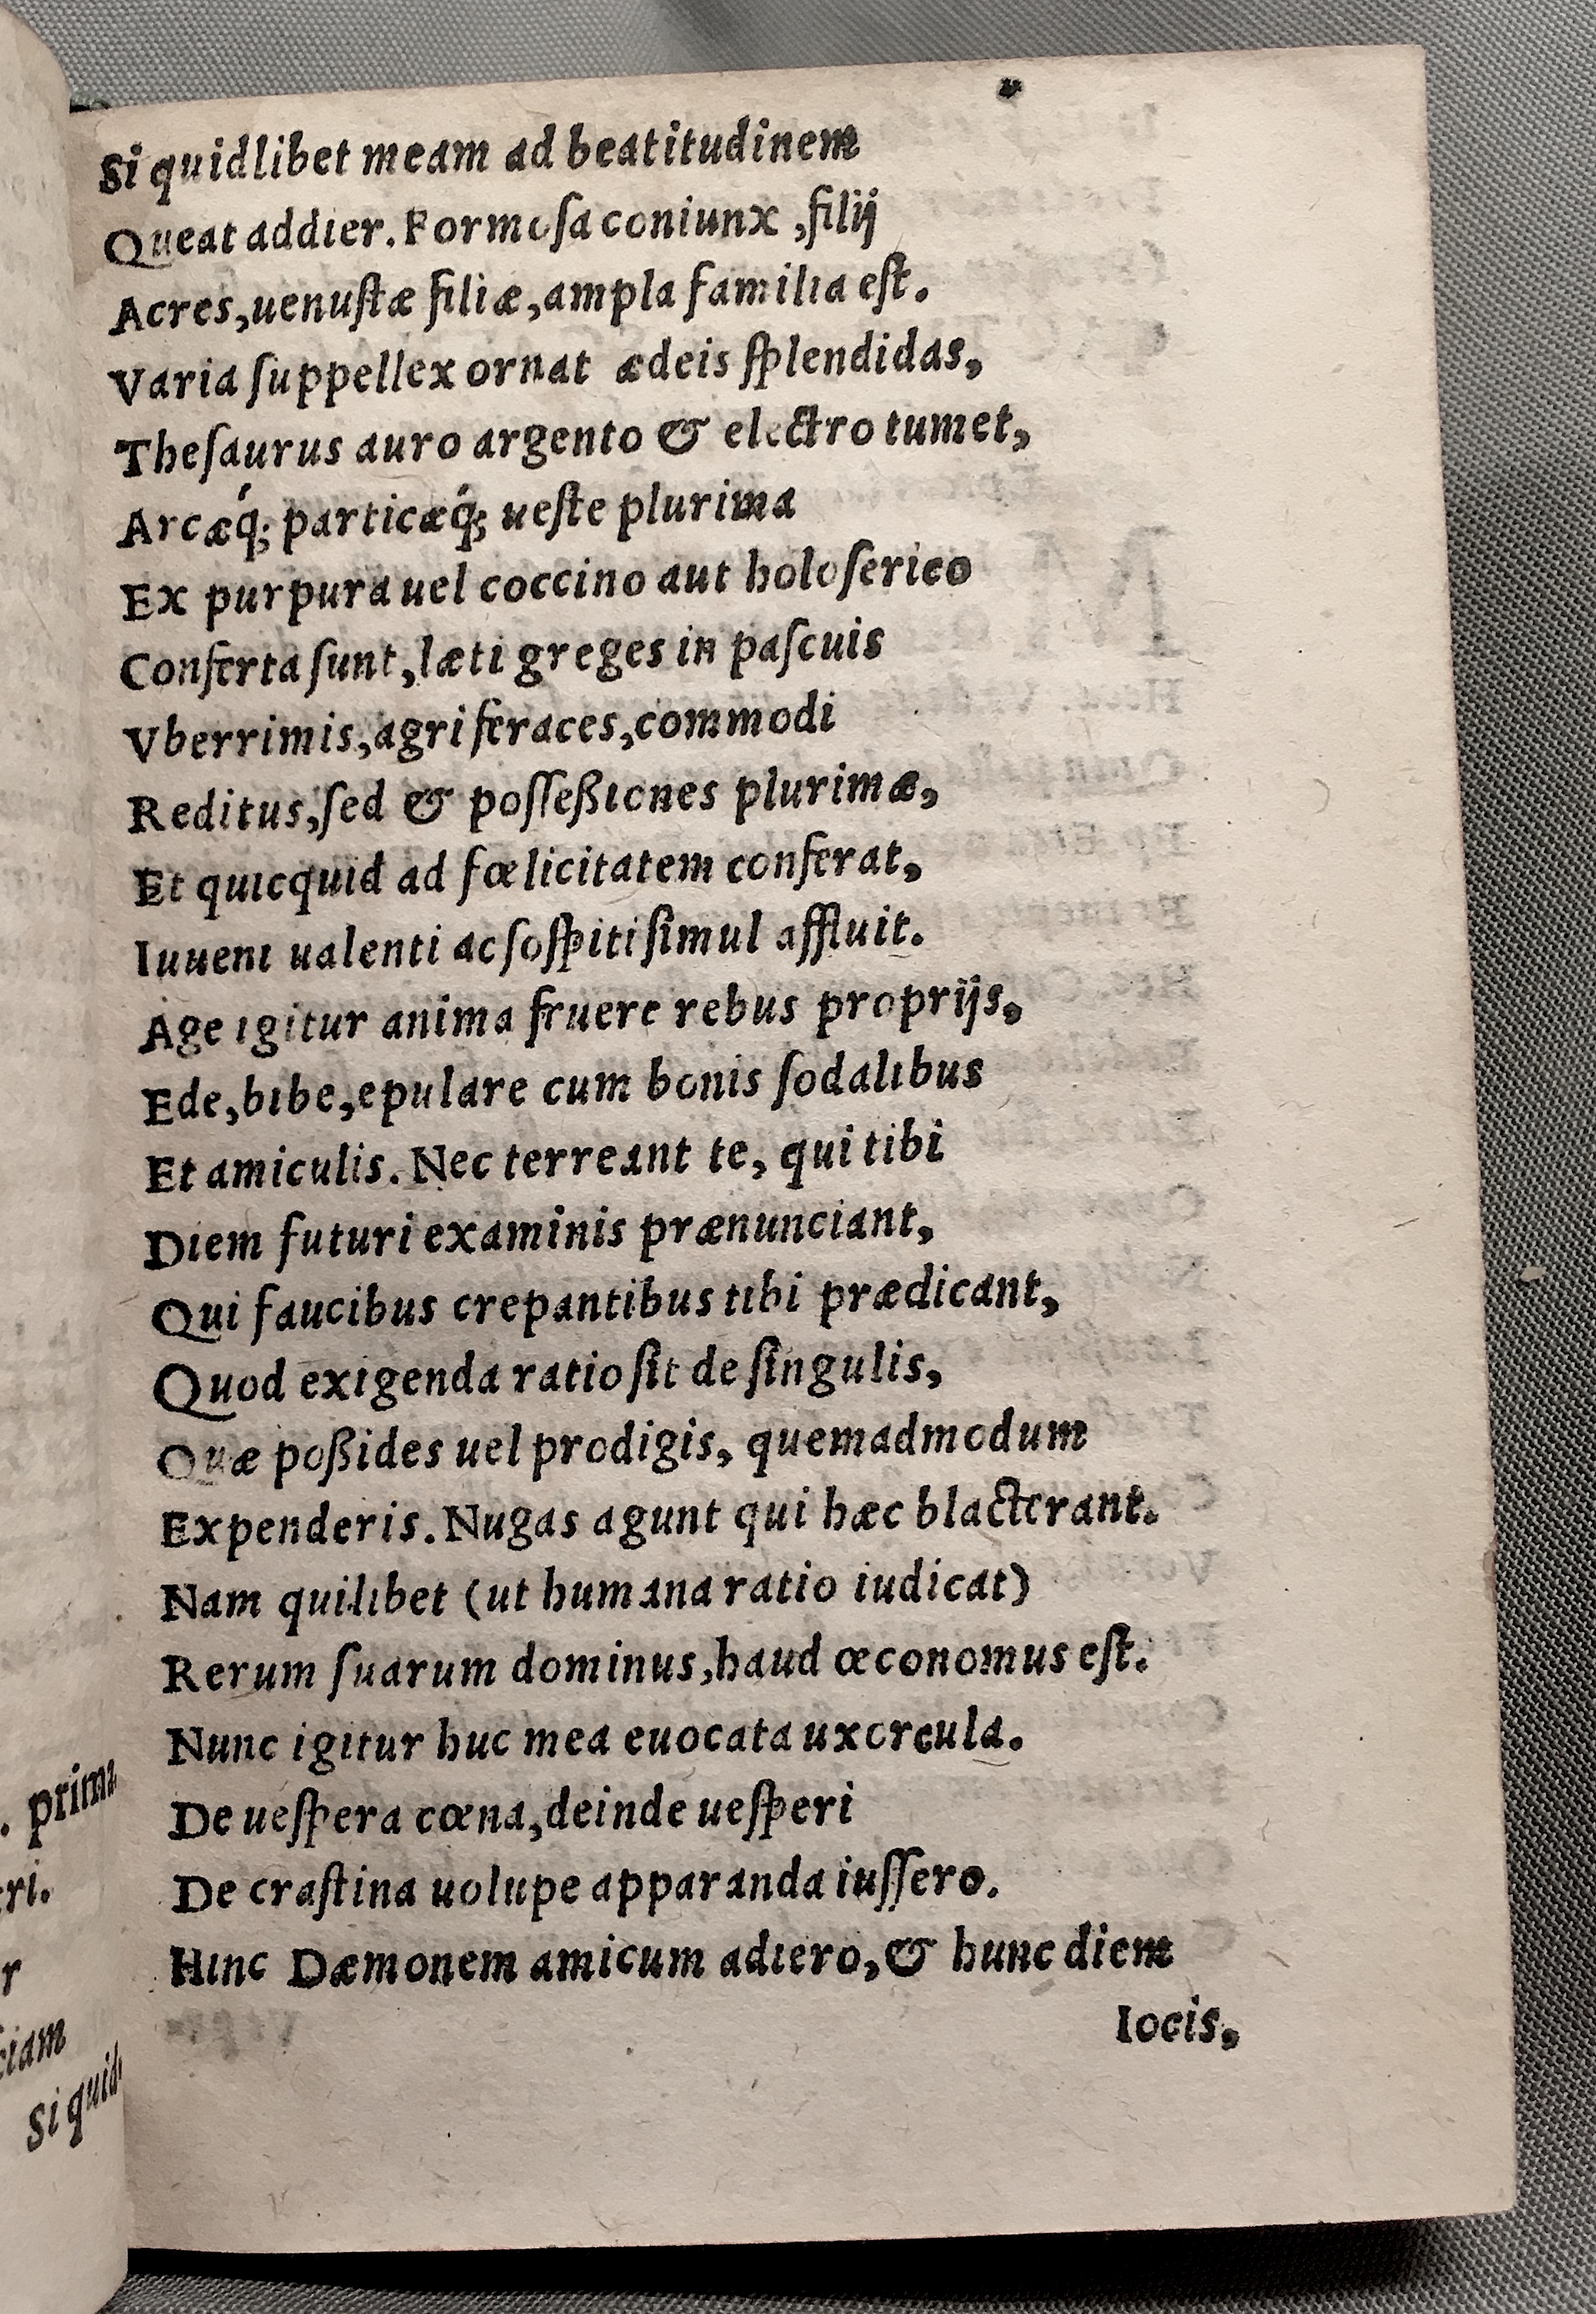 Si quidlibet meam ad beatitudinem
Queat addier. Formosa coniunx, filij
Acres, uenustæ filiæ, ampla familia est.
Varia suppellex ornat ædeis splendidas,
Thesaurus auro argento & electro tumet,
Arcæq́; particæq́; ueste plurima
Ex purpura uel coccino aut holoserico
Conferta sunt, læti greges in pascuis
Vberrimis, agri feraces, commodi
Reditus, sed & possessiones plurimæ,
Et quicquid ad fœlicitatem conferat,
Iuueni ualenti ac sospiti simul affluit.
Age igitur anima fruere rebus proprijs,
Ede, bibe, epulare cum bonis sodalibus
Et amiculis. Nec terreant te, qui tibi
Diem futuri examinis prænunciant,
Qui faucibus crepantibus tibi prædicant,
Quod exigenda ratio sit de singulis,
Quæ possides uel prodigis, quemadmodum
Expenderis. Nugas agunt qui hæc blacterant.
Nam quilibet (ut humana ratio iudicat)
Rerum suarum dominus, haud œconomus est.
Nunc igitur huc mea euocata uxorcula.
De uespera cœna, deinde uesperi
De crastina uolupe apparanda iussero.
Hinc Dæmonem amicum adiero, & hunc diem
Iocis,
prima
ri.
r
ciam
Si quid